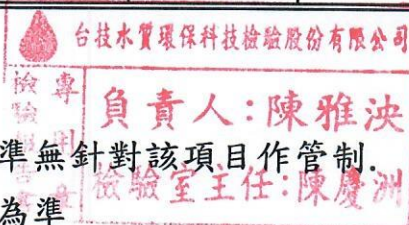 台技水質環保科技檢驗股份有限公司
檢驗報告專用章
負責人:陳雅泱
準無針對該項目作管制.
檢驗室主任:陳慶洲
為準